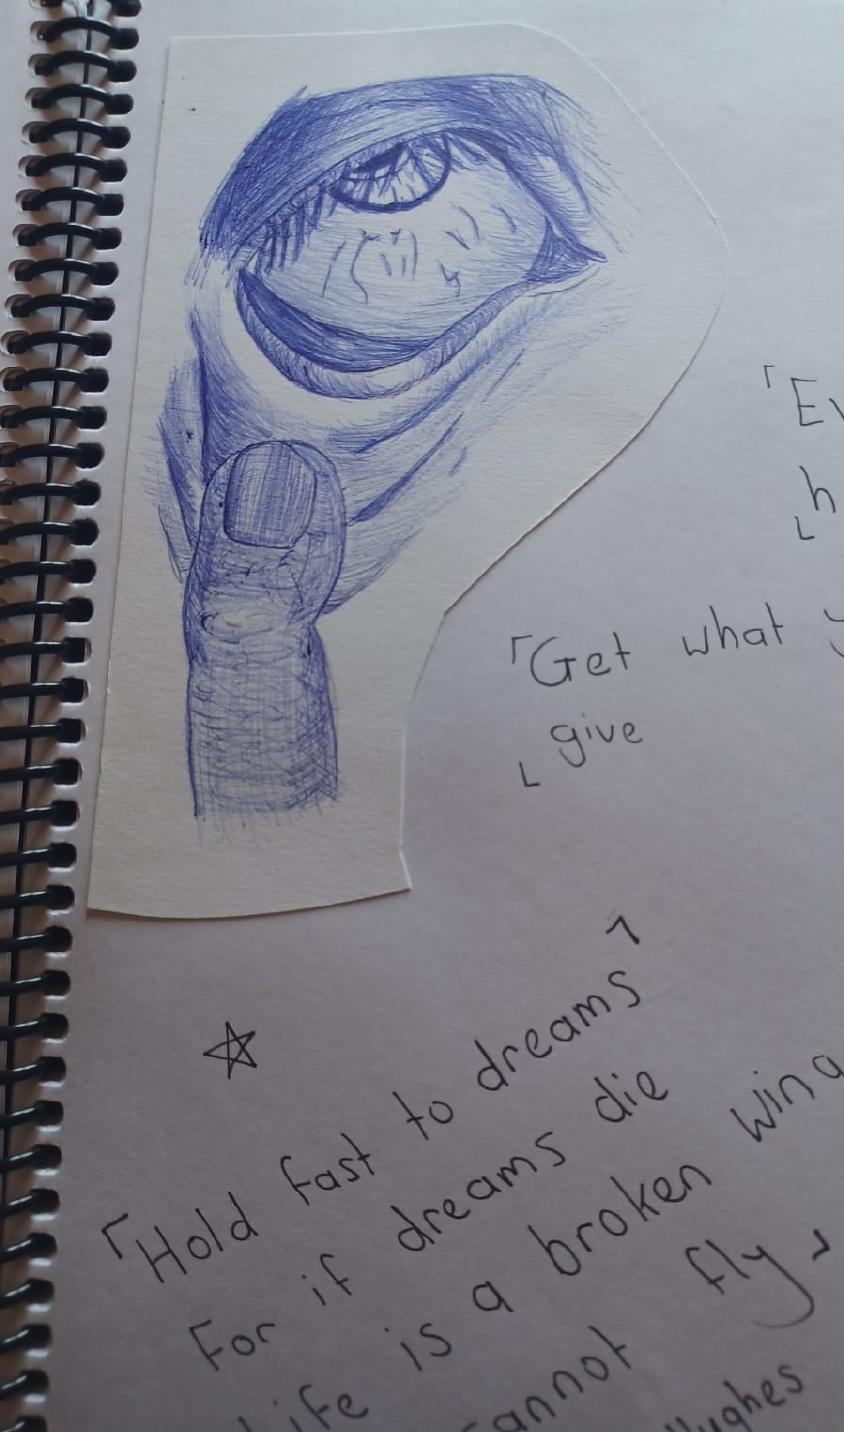 「Ev
h
「Get what
give
「Hold fast to dreams
For if dreams die
Life is a broken wing
cannot fly
Hughes